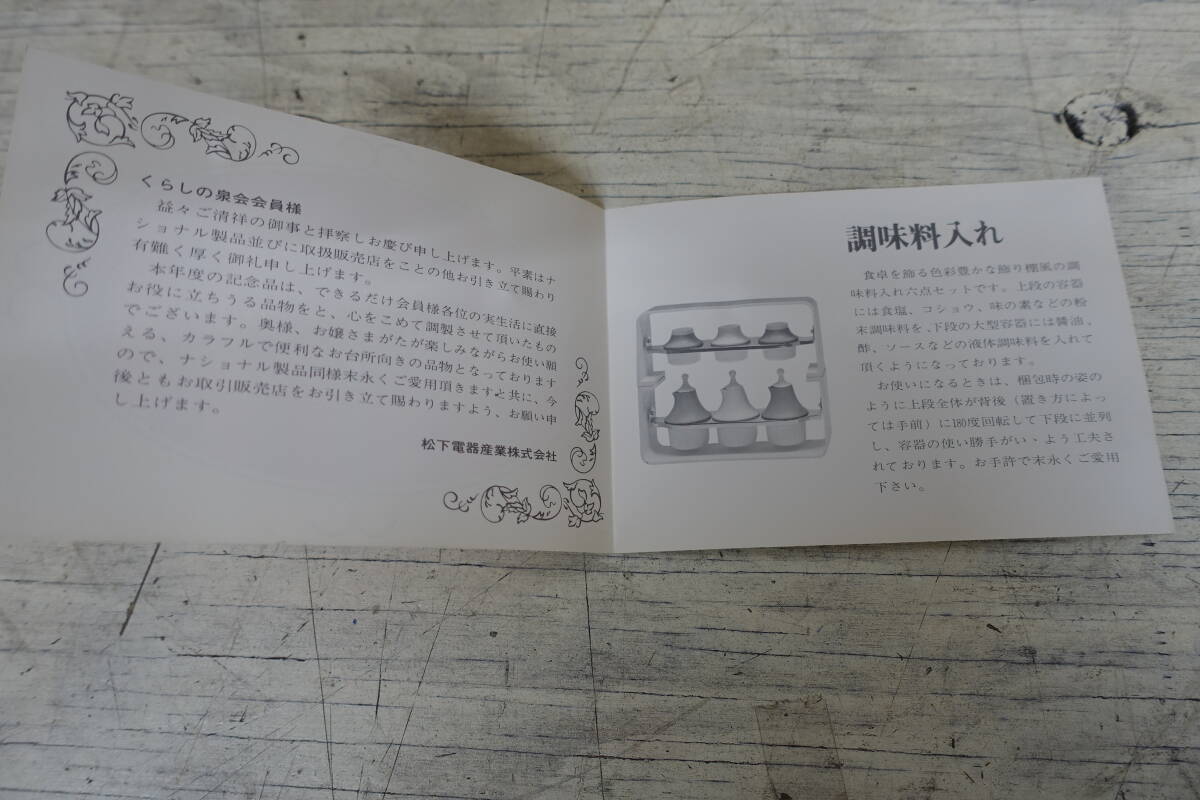 くらしの泉会会員様
益々ご清祥の御事と拝察しお慶び申し上げます。平素はナ
ショナル製品並びに取扱販売店をことの他お引き立て賜わり
有難く厚く御礼申し上げます。
本年度の記念品は、できるだけ会員様各位の実生活に直接
お役に立ちうる品物をと、心をこめて調製させて頂いたもの
でございます。奥様、お嬢さまがたが楽しみながらお使い願
える、カラフルで便利なお台所向きの品物となっております
ので、ナショナル製品同様末永くご愛用頂きますと共に、今
後ともお取引販売店をお引き立て賜わりますよう、お願い申
し上げます。
松下電器産業株式会社
調味料入れ
食卓を飾る色彩豊かな飾り棚風の調
味料入れ六点セットです。上段の容器
には食塩、コショウ、味の素などの粉
末調味料を、下段の大型容器には醤油、
酢、ソースなどの液体調味料を入れて
頂くようになっております。
お使いになるときは、梱包時の姿の
ように上段全体が背後（置き方によっ
ては手前）に180度回転して下段に並列
し、容器の使い勝手がい・よう工夫さ
れております。お手許で末永くご愛用
下さい。